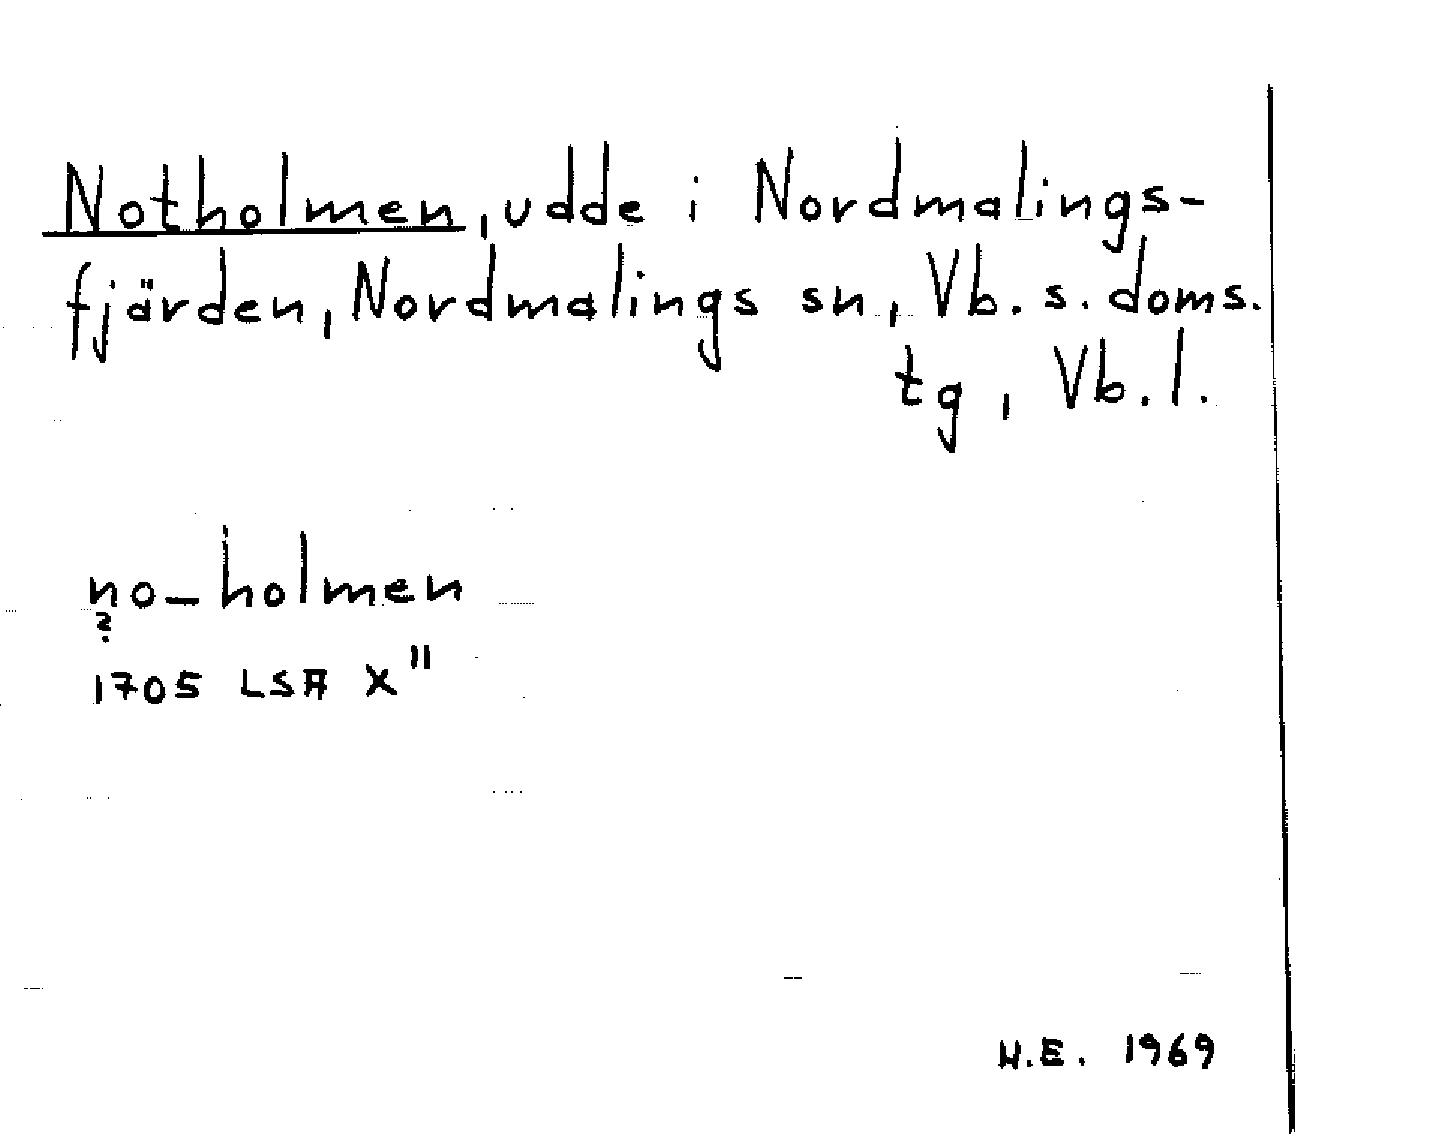 Notholmen, udde i Nordmalings-
fjärden, Nordmalings sn, Vb. s. doms.
tg, Vb. l.
no-holmen
?
1705 LSA X"
H.E. 1969